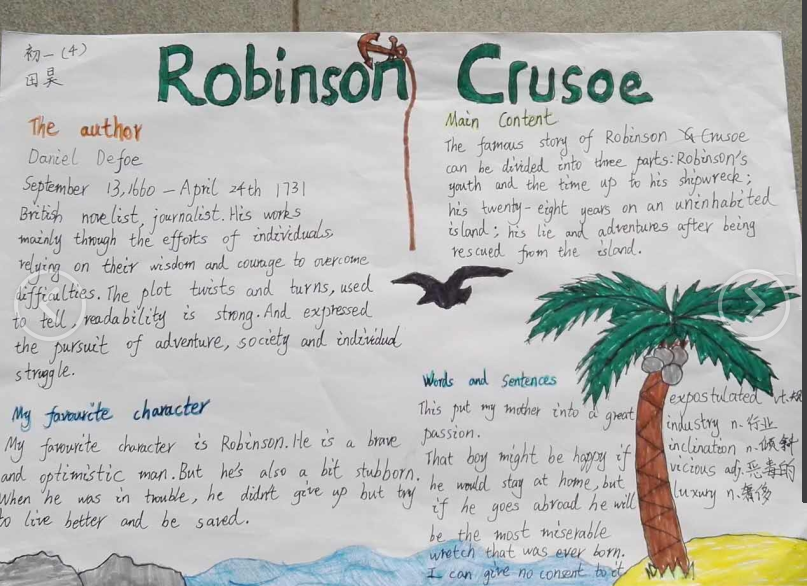 初一(4)
田昊
Robinson Crusoe
The author
Daniel Defoe
September 13,1660 – April 24th 1731
British novelist, journalist. His works
mainly through the efforts of individuals
relying on their wisdom and courage to overcome
difficulties. The plot twists and turns, used
to tell, readability is strong. And expressed
the pursuit of adventure, society and individual
struggle.
My favourite character
My favourite character is Robinson. He is a brave
and optimistic man. But he's also a bit stubborn.
When he was in trouble, he didn't give up but try
to live better and be saved.
Main Content
The famous story of Robinson Crusoe
can be divided into three parts: Robinson's
youth and the time up to his shipwreck;
his twenty-eight years on an uninhabited
island; his lie and adventures after being
rescued from the island.
Words and Sentences
This put my mother into a great
passion.
That boy might be happy if
he would stay at home, but
if he goes abroad he will
be the most miserable
wretch that was ever born.
I can give no consent to it
expostulated vt.
industry n.行业
inclination n.倾斜
vicious adj.恶毒的
luxury n.奢侈